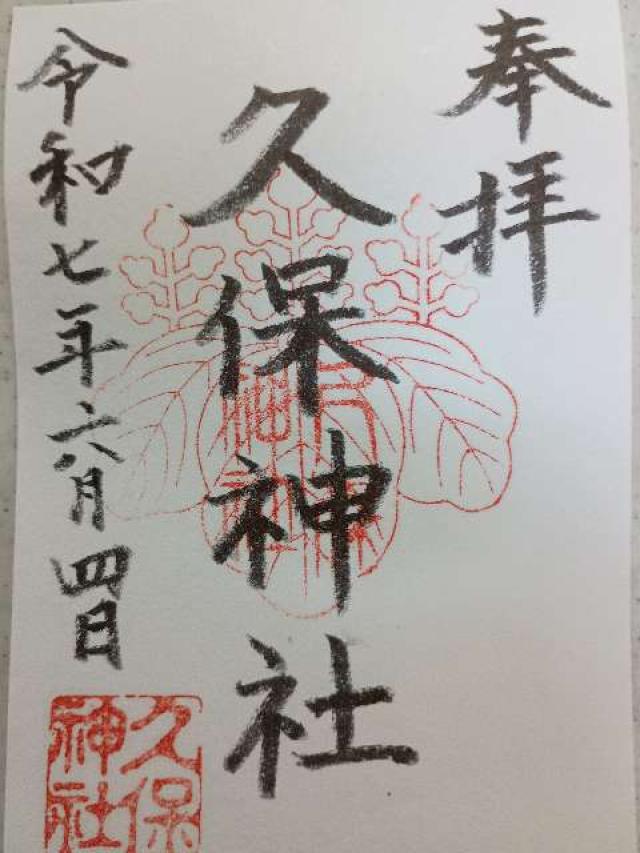 奉拝
久保神社
令和七年六月四日
久保
神社